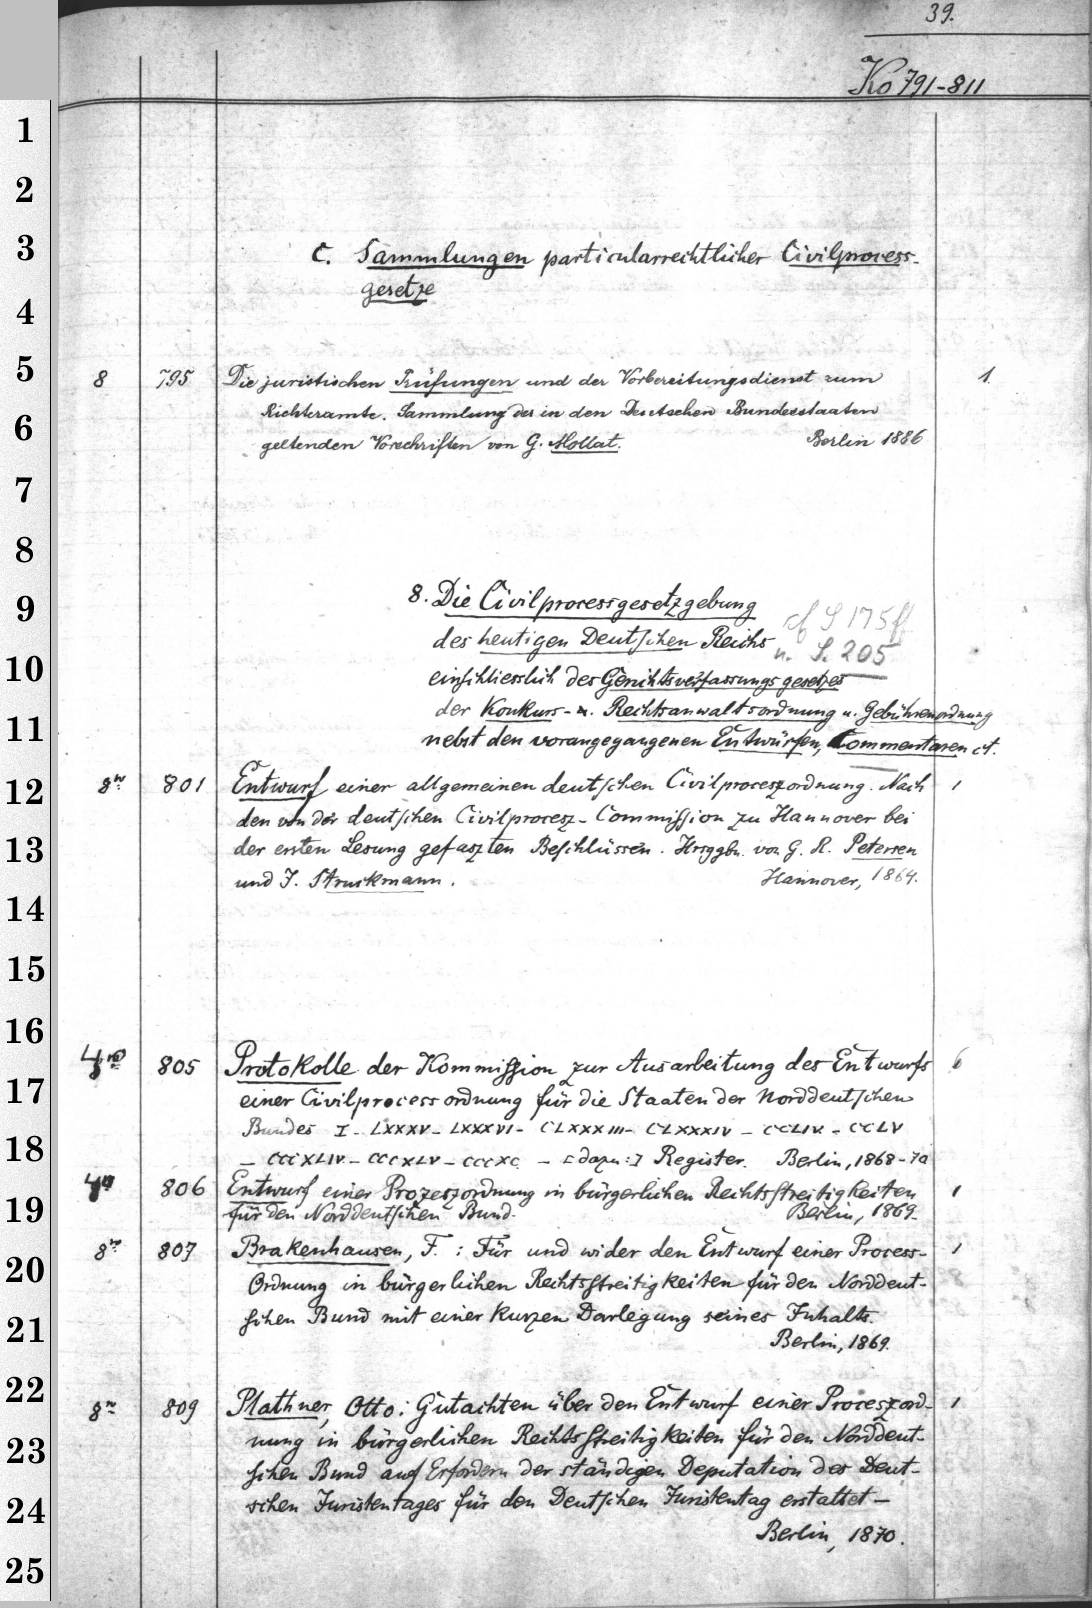 39.
Ko 791-811
C. Sammlungen particularrechtlicher Civilprocess-
gesetze
8 795 Die juristischen Prüfungen und der Vorbereitungsdienst zum 1.
Richteramte. Sammlung der in den Deutschen Bundesstaaten
geltenden Vorschriften von G. Mollat. Berlin 1886
8. Die Civilprocessgesetzgebung
cf S 175ff
des heutigen Deutschen Reichs
u. S. 205
einschliesslich des Gerichtsverfassungsgesetzes
der Konkurs- u. Rechtsanwaltsordnung u. Gebührenordnung
nebst den vorangegangenen Entwürfen, Commentaren ct.
8° 801 Entwurf einer allgemeinen deutschen Civilproceszordnung. Nach 1
den von der deutschen Civilprocesz-Commission zu Hannover bei
der ersten Lesung gefaszten Beschlüssen. Hrsggbn. von G. R. Petersen
und J. Struckmann. Hannover, 1864.
4° 805 Protokolle der Kommission zur Ausarbeitung des Entwurfs 6
einer Civilprocessordnung für die Staaten der Norddeutschen
Bundes I - LXXXV - LXXXVI - CLXXXIII - CLXXXIV - CCLIV - CCLV
- CCCXLIV - CCCXLV - CCCXC - [dazu:] Register. Berlin, 1868-70
4° 806 Entwurf einer Prozeszordnung in bürgerlichen Rechtsstreitigkeiten 1
für den Norddeutschen Bund. Berlin, 1869.
8° 807 Brakenhausen, F. : Für und wider den Entwurf einer Process- 1
Ordnung in bürgerlichen Rechtsstreitigkeiten für den Norddeut-
schen Bund mit einer kurzen Darlegung seines Inhalts.
Berlin, 1869.
8° 809 Plathner, Otto: Gutachten über den Entwurf einer Proceszord- 1
nung in bürgerlichen Rechtsstreitigkeiten für den Norddeut-
schen Bund auf Erfordern der ständigen Deputation des Deut-
schen Juristentages für den Deutschen Juristentag erstattet -
Berlin, 1870.
1
2
3
4
5
6
7
8
9
10
11
12
13
14
15
16
17
18
19
20
21
22
23
24
25